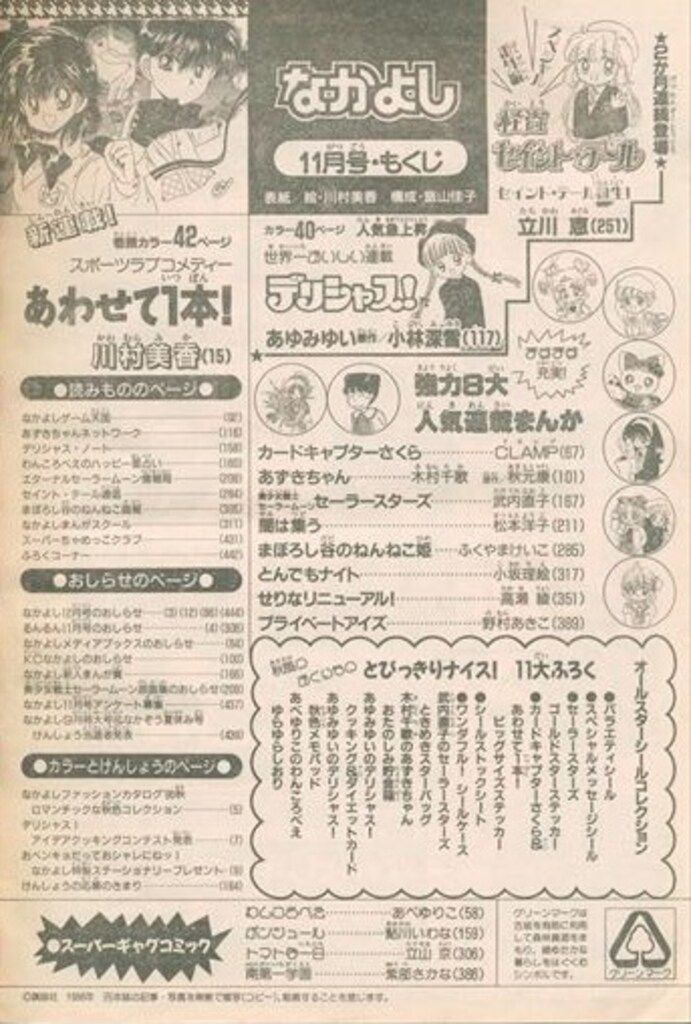 なかよし
11月号・もくじ
表紙/絵・川村美香 構成・飯山佳子
新連載!
巻頭カラー42ページ
スポーツラブコメディー
あわせて1本!
川村美香(15)
カラー40ページ 人気急上昇
世界一おいしい連載
デリシャス!
あゆみゆい 原作/小林深雪(117)
★2か月連続登場★
セイント・テール
セイント・テール
立川 恵(251)
まだまだ
充実!
強力8大
人気連載まんが
カードキャプターさくら CLAMP(67)
あずきちゃん 木村千歌 原作/秋元康(101)
美少女戦士セーラームーン セーラースターズ 武内直子(167)
闇は集う 松本洋子(211)
まぼろし谷のねんねこ姫 ふくやまけいこ(285)
とんでもナイト 小坂理絵(317)
せりなリニューアル! 高瀬 綾(351)
プライベートアイズ 野村あきこ(389)
●読みもののページ●
なかよしゲーム
あずきちゃんネットワーク (116)
デリシャス・ノート (158)
わんころべえのハッピー星占い
エターナルセーラームーン
セイント・テール通信
まぼろし谷のねんねこ
なかよしまんがスクール (311)
スーパーちゃめっこクラブ (431)
ふろくコーナー (442)
●おしらせのページ●
なかよし12月号のおしらせ (3)(12)(444)
るんるん11月号のおしらせ (4)
なかよしメディアブックスのおしらせ
KCなかよしのおしらせ (100)
なかよし新人まんが賞 (166)
美少女戦士セーラームーン原画集のおしらせ
なかよし11月号アンケート募集 (437)
なかよし
けんしょう当選者発表
●カラーとけんしょうのページ●
なかよしファッションカタログ
ロマンチックな秋色コレクション (5)
デリシャス!
アイデアクッキングコンテスト発表 (7)
おベンキョだっておシャレにねっ!
なかよし特製ステーショナリープレゼント (9)
けんしょうの応募のきまり (164)
とびっきりナイス! 11大ふろく
オールスターシールコレクション
●バラエティシール
●スペシャルメッセージシール
●セーラースターズ
ゴールドスターステッカー
●カードキャプターさくら&
あわせて1本!
ビッグサイズステッカー
●シールストックシート
●ワンダフル!シールケース
武内直子のセーラースターズ
ときめきスターバッグ
木村千歌のあずきちゃん
おたのしみ貯金箱
あゆみゆいのデリシャス!
クッキング&ダイエットカード
あゆみゆいのデリシャス!
秋色メモパッド
あべゆりこのわんころべえ
ゆらゆらしおり
●スーパーギャグコミック●
わんころべえ あべゆりこ(58)
ボンジュール 鮎川いわな(159)
トマト 立山 京(306)
南第一学園 紫部さかな(386)
グリーンマークは
古紙を有効に利用
して森林資源をま
もり、緑ゆたかな
暮らしをはぐくむ
シンボルです。
グリーンマーク
©講談社 1996年